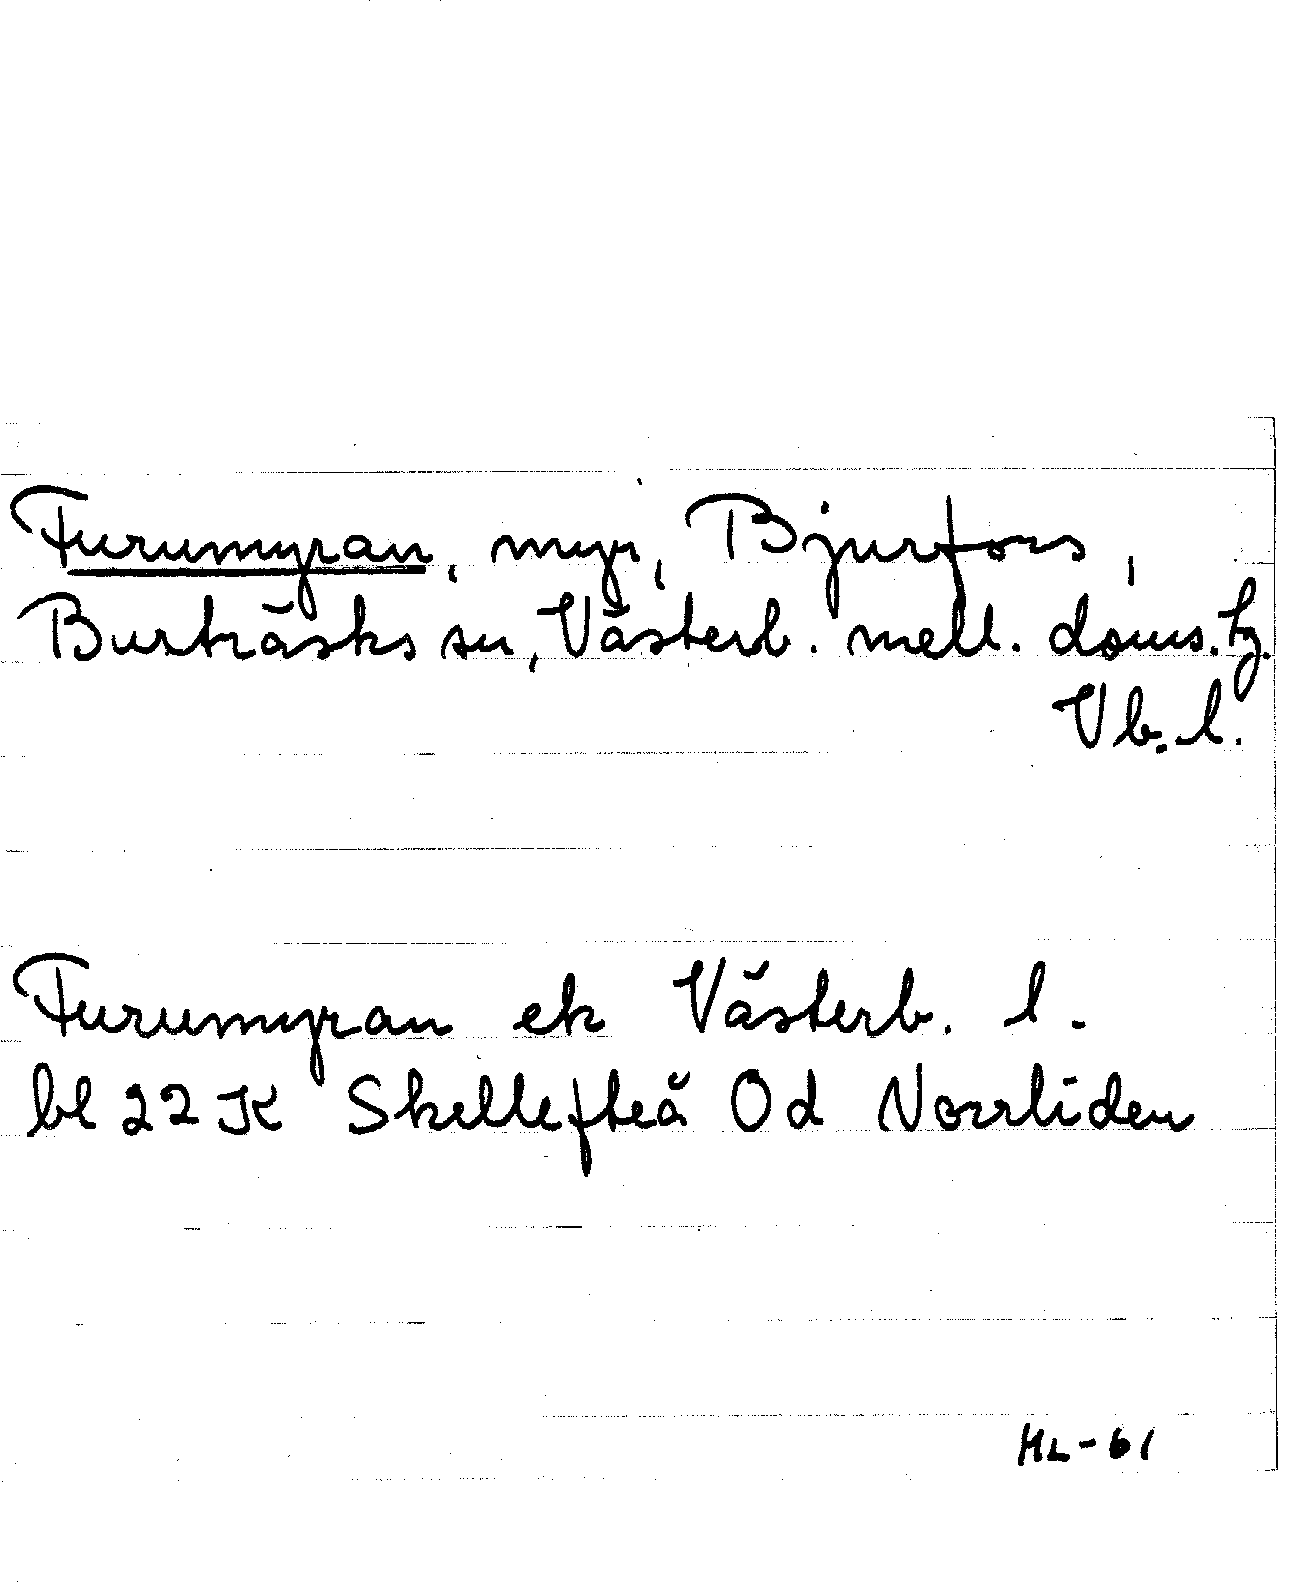 Furumyran, myr, Bjurfors,
Burträsks sn, Västerb. mell. doms. tg.
Vb. l.
Furumyran ek Västerb. l.
bl 22 K Skellefteå 0d Norrliden
HL-61